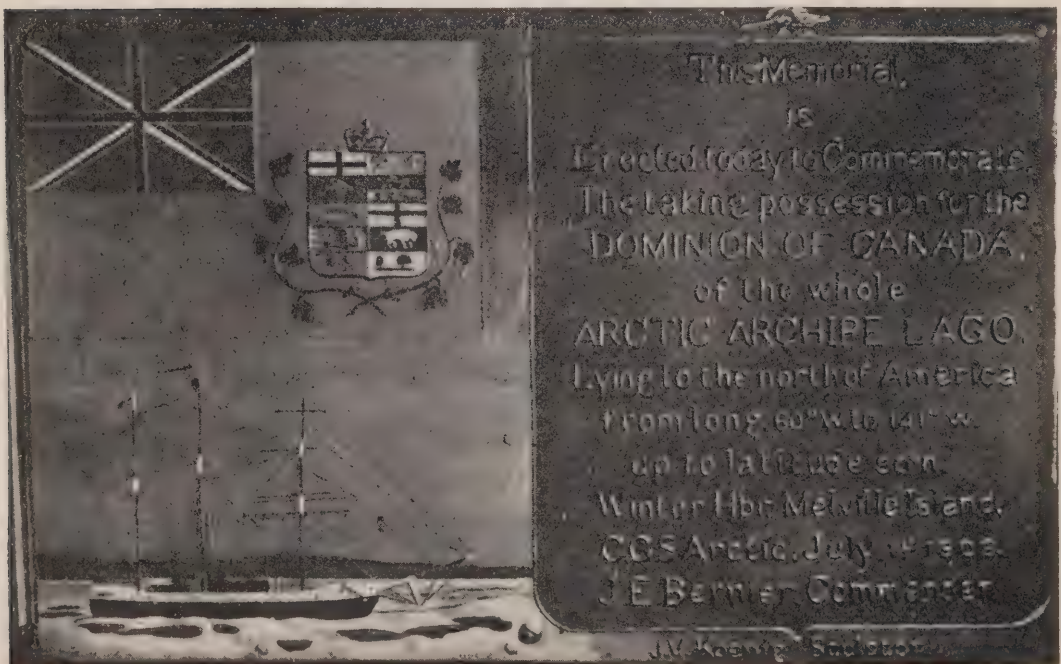 This Memorial,
is
Erected today to Commemorate
The taking possession for the
DOMINION OF CANADA,
of the whole
ARCTIC ARCHIPELAGO,
Lying to the north of America
from long. 60°W. to 141°W.
up to latitude 90N.
Winter Hbr. Melville Island,
CGS Arctic. July
J.E. Bernier Commander
J.V. Koenig Sculptor